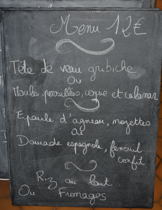 Menu 12€
Tête de veau gribiche
Ou
Moules persillées, vogue et calamar
Epaule d'agneau, mogettes
ou
Daurade espagnole, fenouil
confit
Riz au lait
Ou Fromages